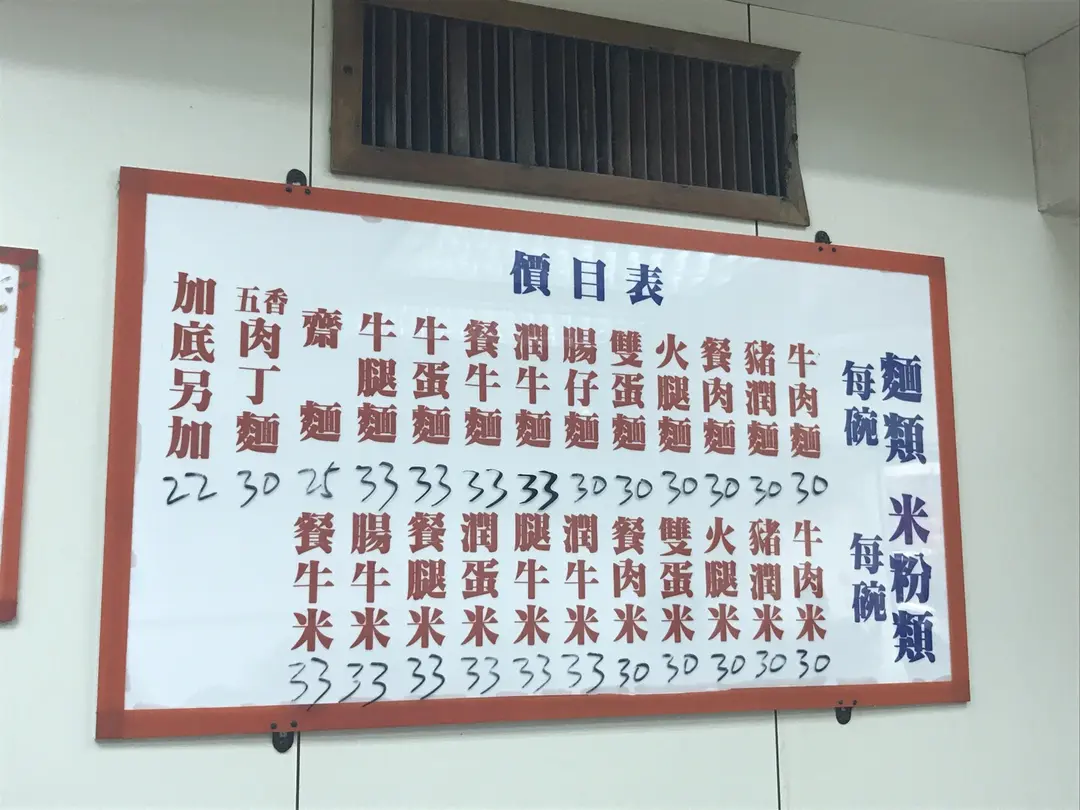 價目表
麵類 每碗
牛肉麵 30
豬潤麵 30
餐肉麵 30
火腿麵 30
雙蛋麵 30
腸仔麵 30
潤牛麵 33
餐牛麵 33
牛蛋麵 33
牛腿麵 33
齋麵 25
五香肉丁麵 30
加底另加 22
米粉類 每碗
牛肉米 30
豬潤米 30
火腿米 30
雙蛋米 30
餐肉米 30
潤牛米 33
腿牛米 33
潤蛋米 33
餐腿米 33
腸牛米 33
餐牛米 33